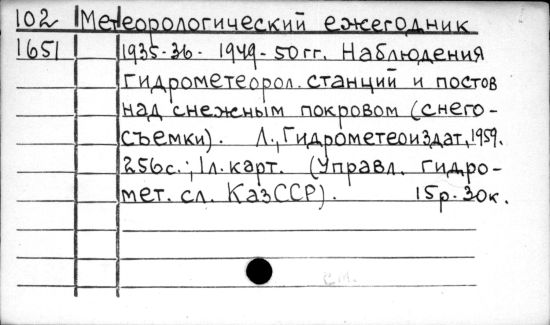 102 Метеорологический ежегодник
1651 1935-36 - 1949-50 гг. Наблюдения
гидрометеорол. станций и постов
над снежным покровом (снего-
съемки). Л., Гидрометеоиздат, 1959.
256с.; 1л. карт. (Управл. гидро-
мет. сл. КазССР). 15р. 30к.